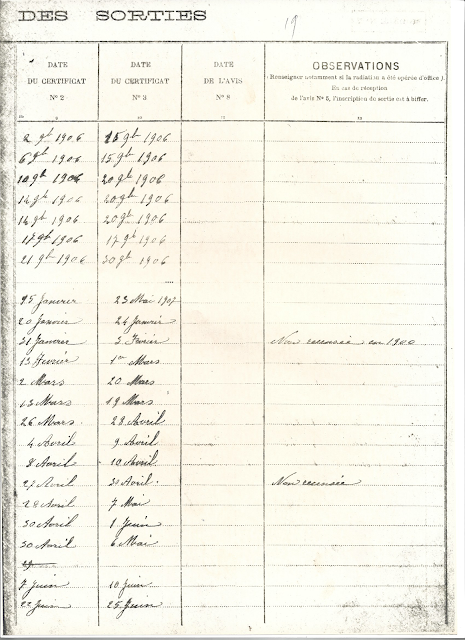 DES SORTIES
19
DATE DU CERTIFICAT Nº 2
DATE DU CERTIFICAT Nº 3
DATE DE L'AVIS Nº 8
OBSERVATIONS
(Renseigner notamment si la radiation a été opérée d'office).
En cas de réception
de l'avis Nº 5, l'inscription de sortie est à biffer.
2 9bre 1906 15 9bre 1906
6 9bre 1906 15 9bre 1906
10 9bre 1906 20 9bre 1906
14 9bre 1906 20 9bre 1906
14 9bre 1906 20 9bre 1906
17 9bre 1906 17 9bre 1906
21 9bre 1906 30 9bre 1906
15 Janvier 23 Mai 1907
20 Janvier 24 Janvier
31 Janvier 3 Février Non recensée en 1900
13 Février 1er Mars
2 Mars 20 Mars
13 Mars 19 Mars
26 Mars 28 Avril
4 Avril 9 Avril
8 Avril 10 Avril
27 Avril 30 Avril Non recensée
28 Avril 7 Mai
30 Avril 1 Juin
30 Avril 6 Mai
7 Juin 10 Juin
22 Juin 25 Juin